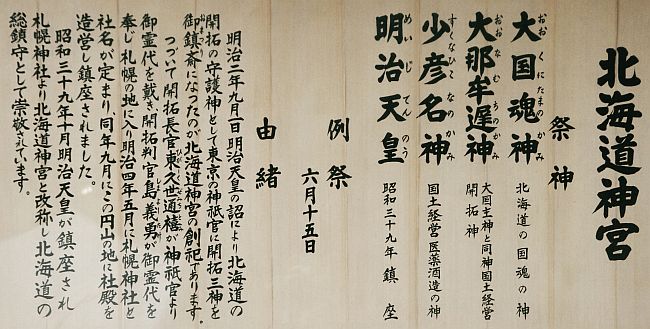 北海道神宮
祭神
大国魂神
おおくにたまのかみ
北海道の国魂の神
大那牟遲神
おおなむちのかみ
大国主神と同神国土経営
開拓神
少彦名神
すくなひこなのかみ
国土経営医薬酒造の神
明治天皇
めいじてんのう
昭和三十九年鎮座
例祭
六月十五日
由緒
明治二年九月一日明治天皇の詔により北海道の
開拓の守護神として東京の神祇官に開拓三神を
御鎮斎になったのが北海道神宮の創祀であります。
つづいて開拓長官東久世通禧が神祇官より
御霊代を戴き開拓判官島義勇が御霊代を
奉じ札幌の地に入り明治四年五月に札幌神社と
社名が定まり、同年九月にこの円山の地に社殿を
造営し鎮座されました。
昭和三十九年十月明治天皇が鎮座され
札幌神社より北海道神宮と改称し北海道の
総鎮守として崇敬されています。